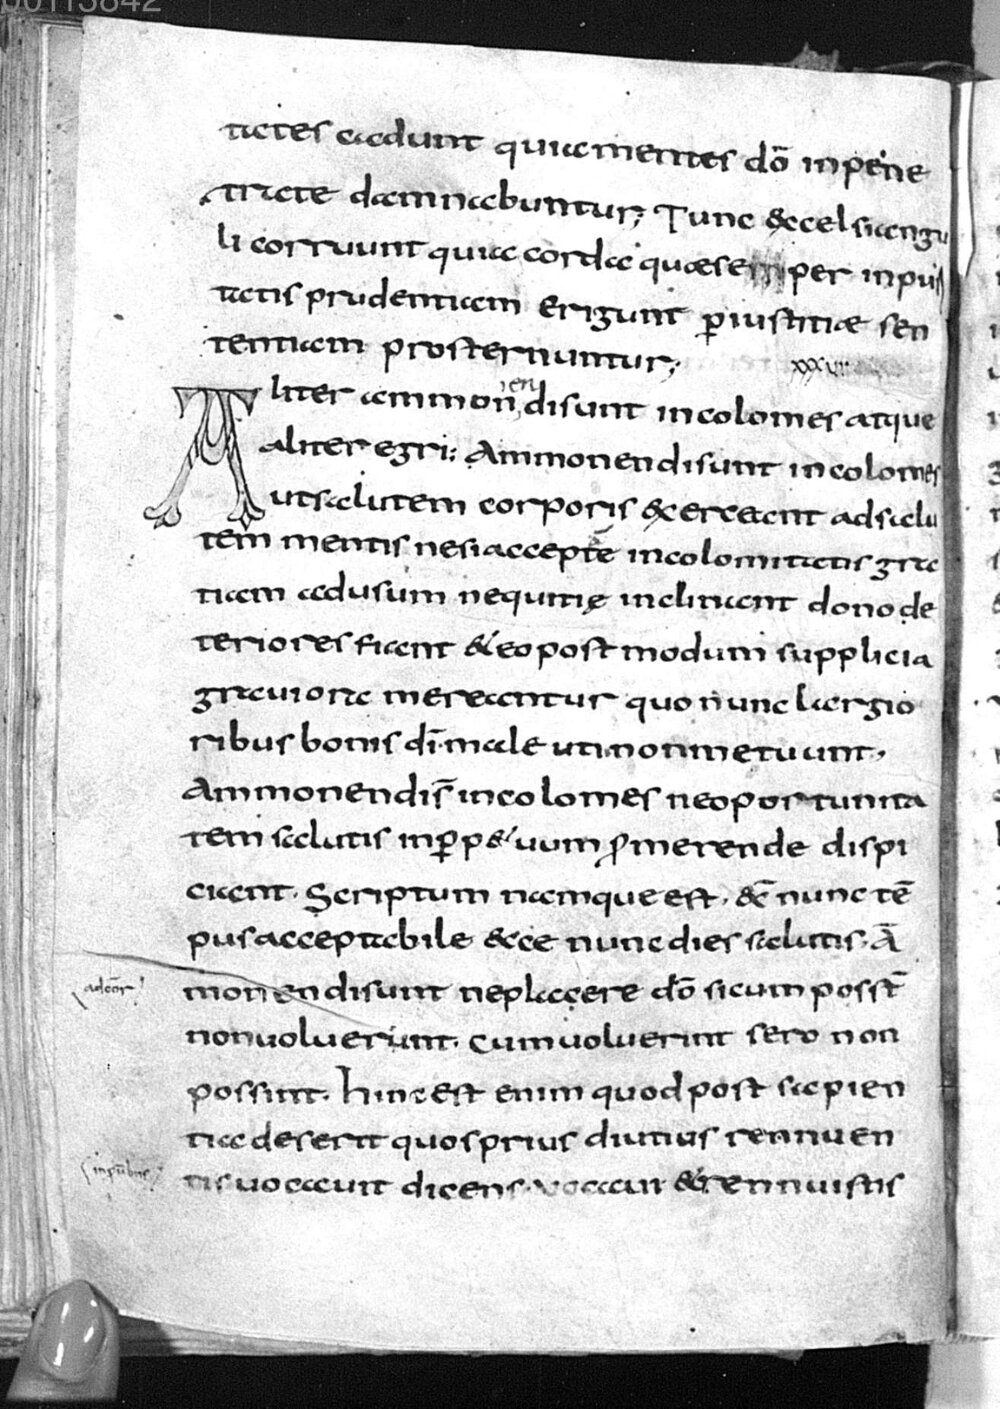 00113842
tates cadunt quia mentes dō inpene
trate damnabuntur; Tunc & celsi angu
li corruunt quia corda quæ semper inpui&
tatis prudentiam erigunt p̄ iustitiæ sen
tentiam prosternuntur;
xxxvii
Aliter ammonendi sunt incolomes atque
aliter egri: Ammonendi sunt incolomes
ut salutem corporis exerceant ad salu
tem mentis ne si acceptę incolomitatis gra
tiam ad usum nequitię inclinent dono de
teriores fiant & eo post modum supplicia
graviora mereantur quo nunc largio
ribus bonis dī male uti non metuunt.
Ammonendi s̄ incolomes ne oportunita
tem salutis in p̄p&uum ꝓmerende dispi
ciant. Scriptum namque est. &c̄ nunc tē
pus acceptabile &ce nunc dies salutis. Ā
monendi sunt ne placere dō si cum poss̄t
non voluerunt. cum voluerint sero non
possint. hinc est enim quod post sapien
tia deserit quos prius diutius rennuen
tis vocavit dicens. vocavi & rennuistis
adcōr
in ꝓūbiis